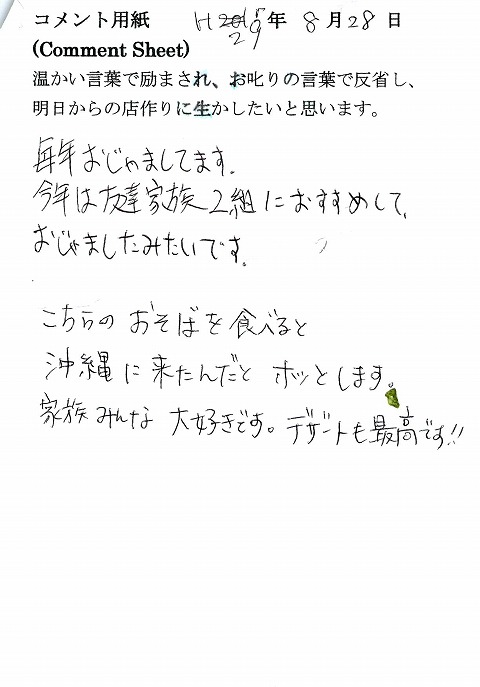 コメント用紙 H29年 8月28日
(Comment Sheet)
温かい言葉で励まされ、お叱りの言葉で反省し、
明日からの店作りに生かしたいと思います。
毎年おじゃましてます。
今年は友達家族2組におすすめして、
おじゃましたみたいです。
こちらの おそばを食べると
沖縄に来たんだと ホッとします。
家族みんな 大好きです。デザートも最高です!!